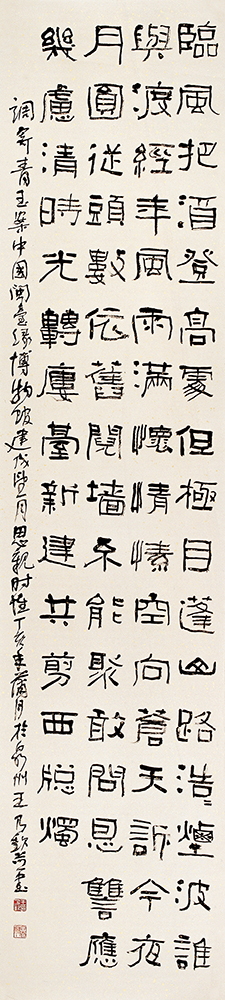 臨風把酒登高處但極目蓬山路浩〻煙波誰
與渡經年風雨滿懷情愫空向蒼天訴今夜
月圓從頭數依舊鬩墻不能聚敢問恩讐應
幾慮清時光轉廔臺新建共剪西牕燭
調寄青玉案中國閩臺緣博物館建成望月思親时惟丁亥年蒲月於泉州王乃欽并書